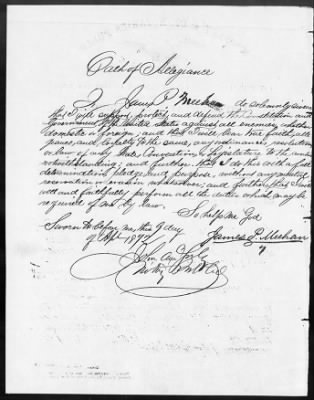 Oath of Allegiance
I, James P. Meehan do solemnly swear
that I will support, protect, and defend the Constitution and
Government of the United States against all enemies, whether
domestic or foreign; and that I will bear true faith, alle
giance, and loyalty to the same, any ordinance, resolution
or law of any State Convention or Legislature to the contrary
notwithstanding; and further, that I do this with a full
determination, pledge and purpose, without any mental
reservation or evasion whatsoever; and further, that I will
well and faithfully perform all the duties which may be
required of me by law.
So help me God
James P. Meehan
Sworn to before me, this 9 day
of